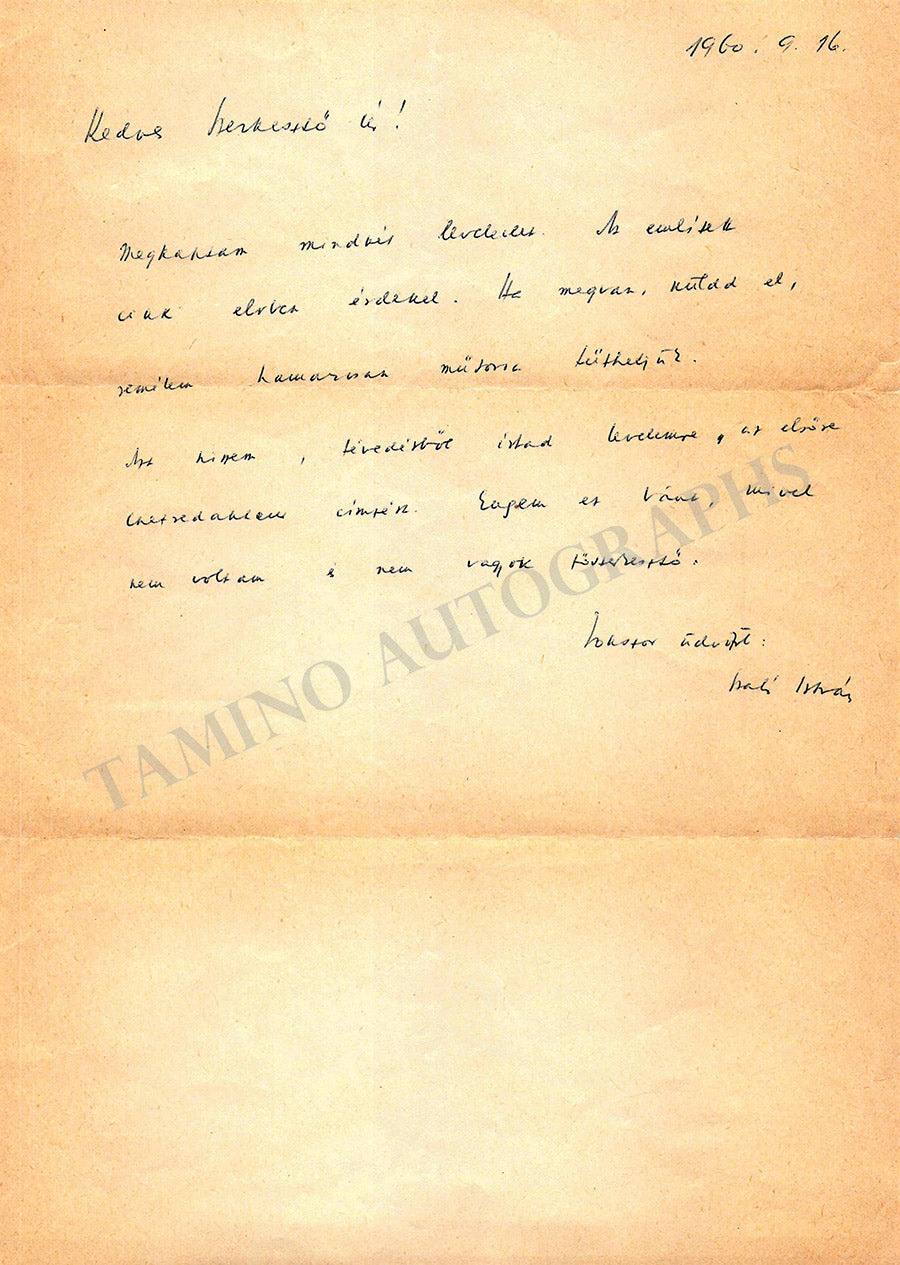 1960. 9. 16.
Kedves Szerkesztő úr!
Megkaptam mindkét leveledet. Az említett
cikk elvben érdekel. Ha megvan, küldd el,
remélem hamarosan műsorra tűzhetjük.
Azt hiszem, tévedésből írtad levelemre, az elsőre
címzést. Engem ez várat, mivel
nem voltam s nem vagyok főszerkesztő.
Sokszor üdvözöl:
István
TAMINO AUTOGRAPHS